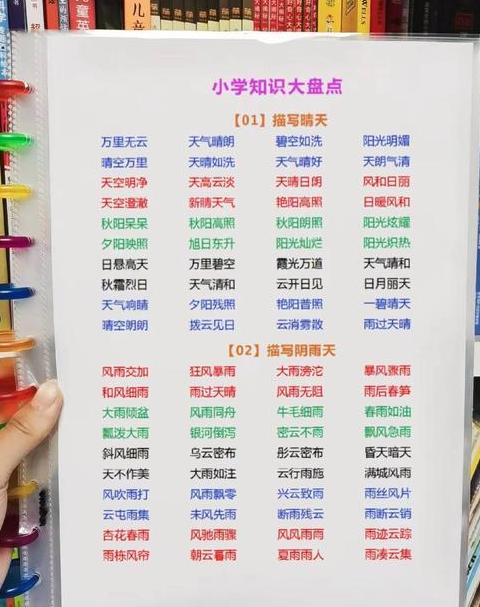 小学知识大盘点
【01】描写晴天
万里无云 天气晴朗 碧空如洗 阳光明媚
晴空万里 天晴如洗 天气晴好 天朗气清
天空明净 天高云淡 天晴日朗 风和日丽
天空澄澈 新晴天气 艳阳高照 日暖风和
秋阳杲杲 秋阳高照 秋阳朗照 阳光炫耀
夕阳映照 旭日东升 阳光灿烂 阳光炽热
日悬高天 万里碧空 霞光万道 天气晴和
秋霜烈日 天气清和 云开日见 日月丽天
天气响晴 夕阳残照 艳阳普照 一碧晴天
晴空朗朗 拨云见日 云消雾散 雨过天晴
【02】描写阴雨天
风雨交加 狂风暴雨 大雨滂沱 暴风骤雨
和风细雨 雨过天晴 风雨无阻 雨后春笋
大雨倾盆 风雨同舟 牛毛细雨 春雨如油
瓢泼大雨 银河倒泻 密云不雨 飘风急雨
斜风细雨 乌云密布 彤云密布 昏天暗天
天不作美 大雨如注 云行雨施 满城风雨
风吹雨打 风雨飘零 兴云致雨 雨丝风片
云屯雨集 未风先雨 断雨残云 雨断云销
杏花春雨 风驰雨骤 风风雨雨 雨迹云踪
雨栋风帘 朝云暮雨 夏雨雨人 雨凑云集
儿童英
儿